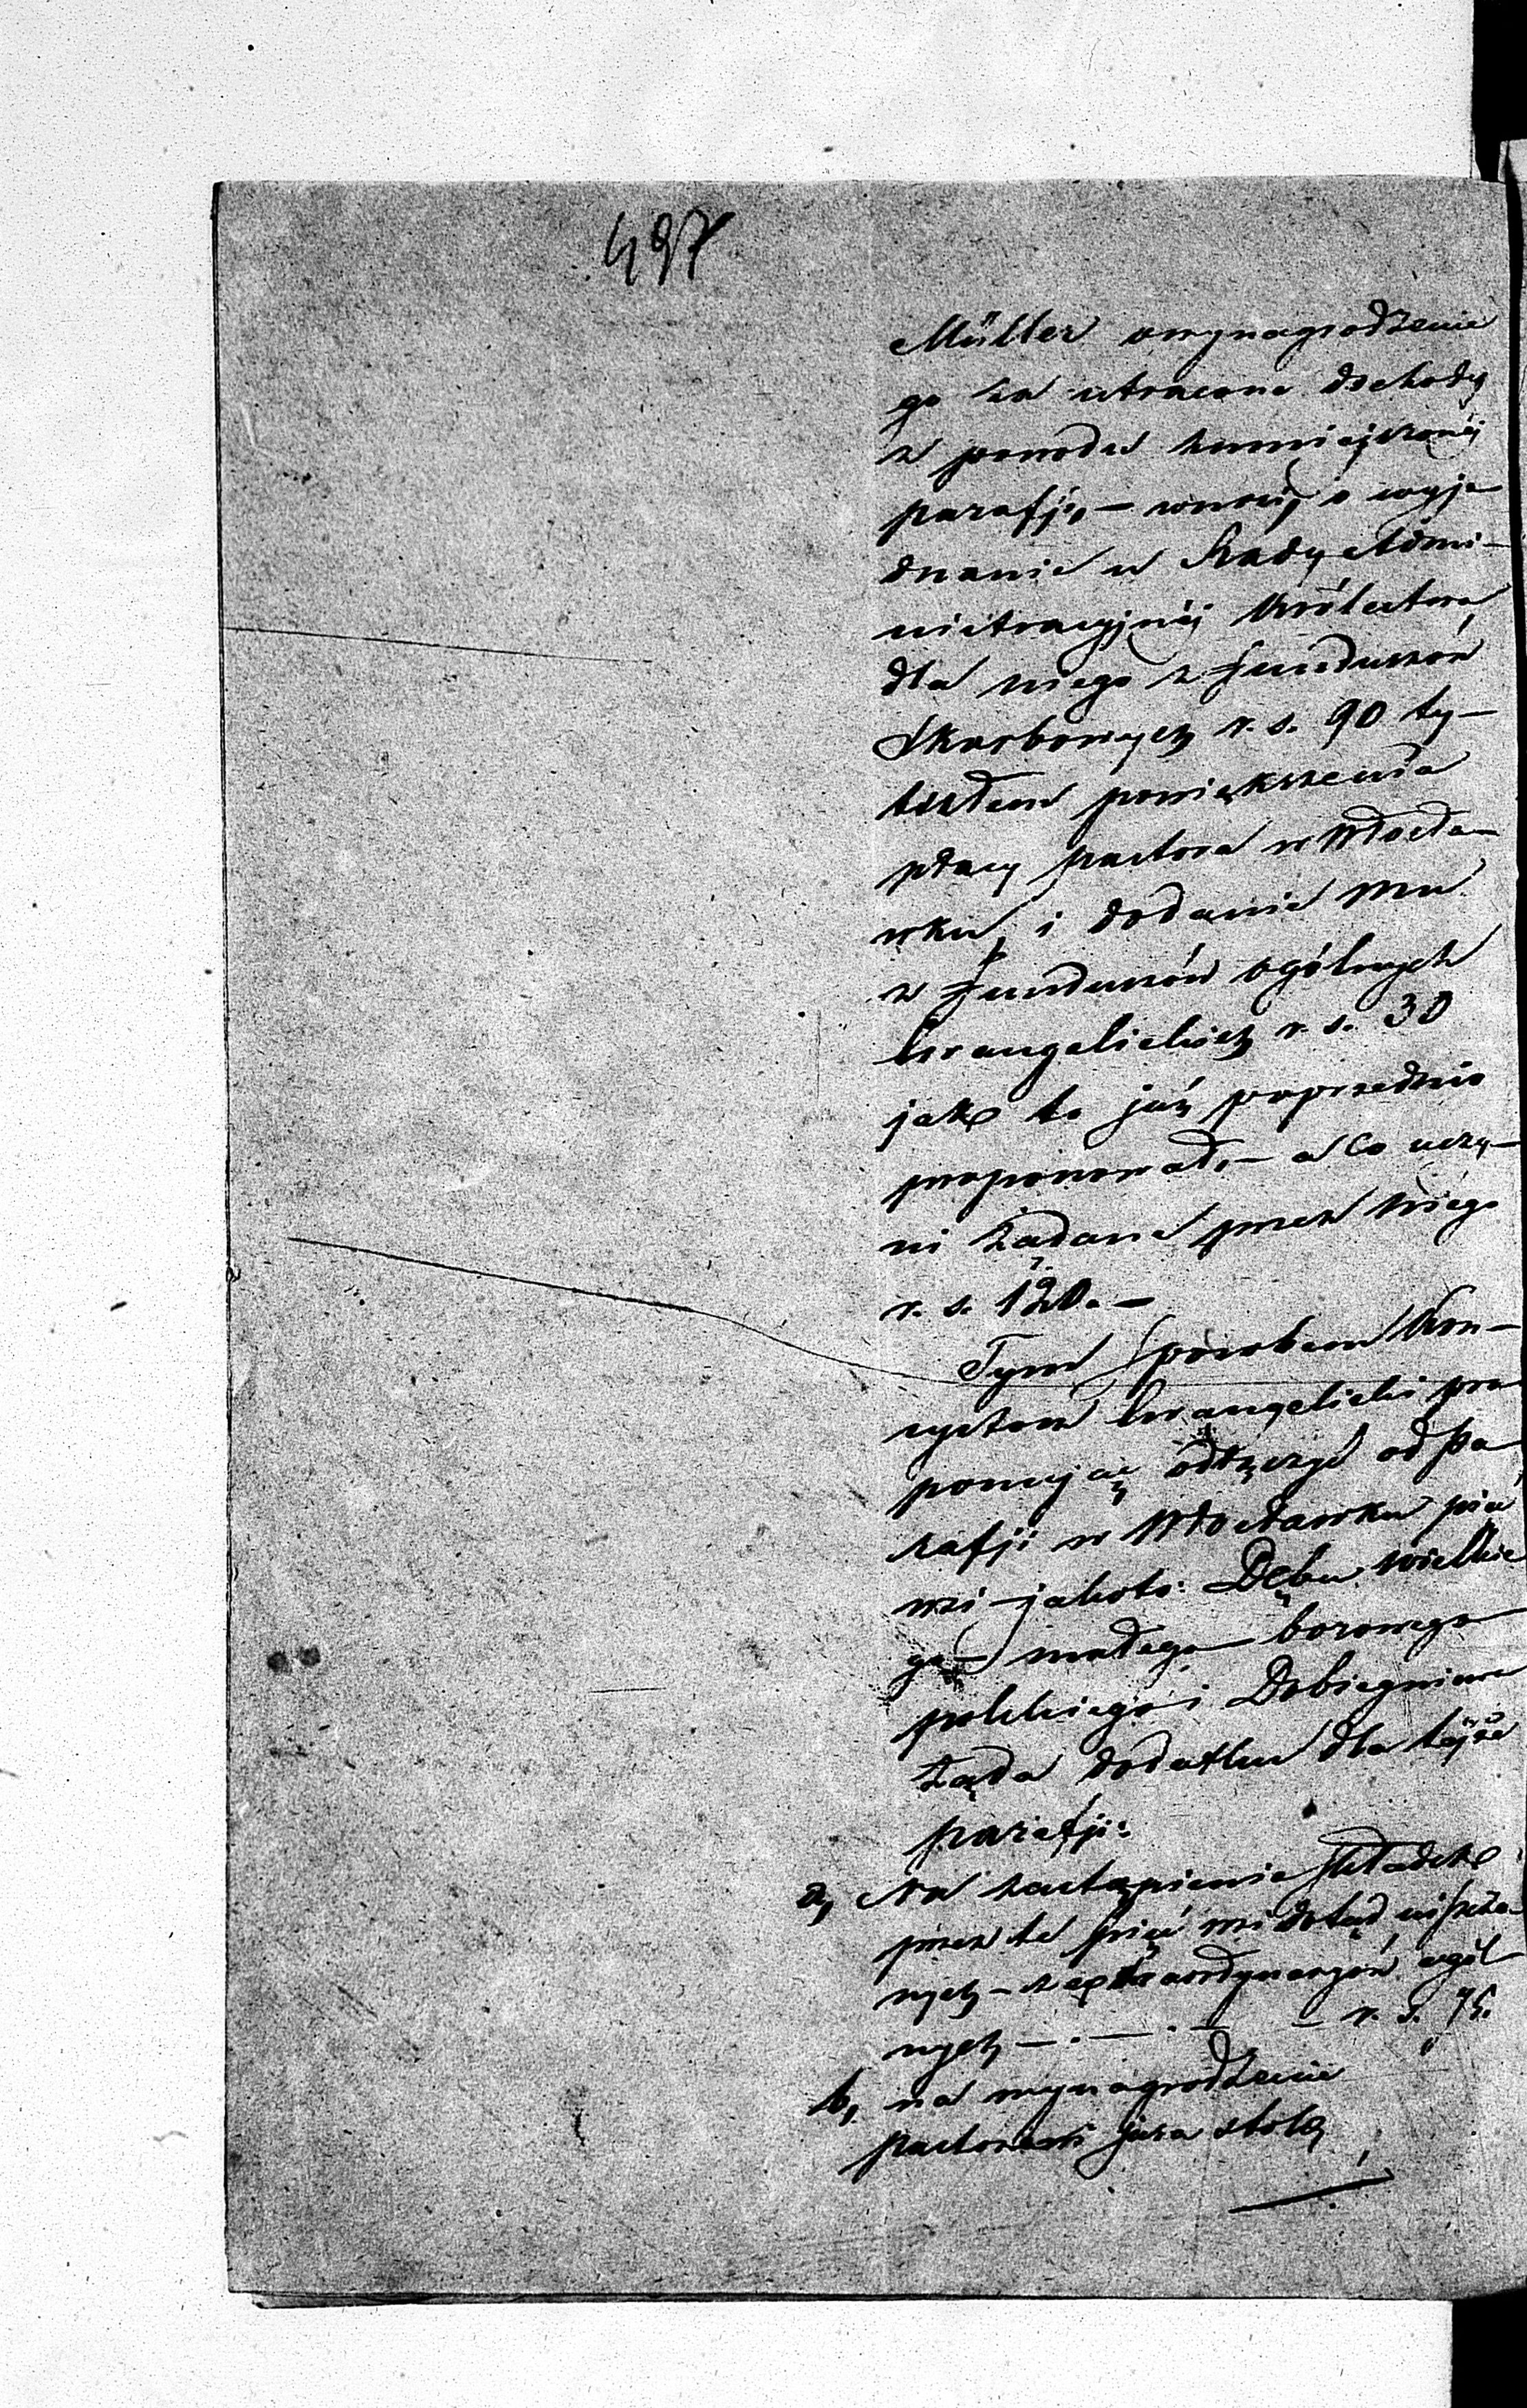 497
Müller o wynagrodzenie
go za utracone dochody
z powodu zmniejszonéj
parafji, — wnosi o wyje-
dnanie w Rady Admi-
nistracyjnéj Królestwa,
dla niego z funduszów
Skarbowych r. s. 90 ty-
tułem powiększenia
płacy pastora w Włocła-
wku, i dodanie mu
z funduszów ogólnych
Ewangelickich r. s. 30
jak to już poprzednio
proponował, — a co uczy-
ni żądane przez niego
r. s. 120. —
Tym sposobem Kon-
systorz Ewangelicki pro
ponując odłączyć od Pa
rafji w Włocławku pięć
wsi jakoto: Dębu wielkie
go — małego — borowego
polskiego i Dobiegniewa
żąda dodatku dla tejże
parafji:
a, Na zastąpienie składek
przez te pięć wsi dotąd uiszcza-
nych — z extraordynaryów ogól
nych — . — . — — r. s. 75.
b, na wynagrodzenie
pastorowi jura stolę